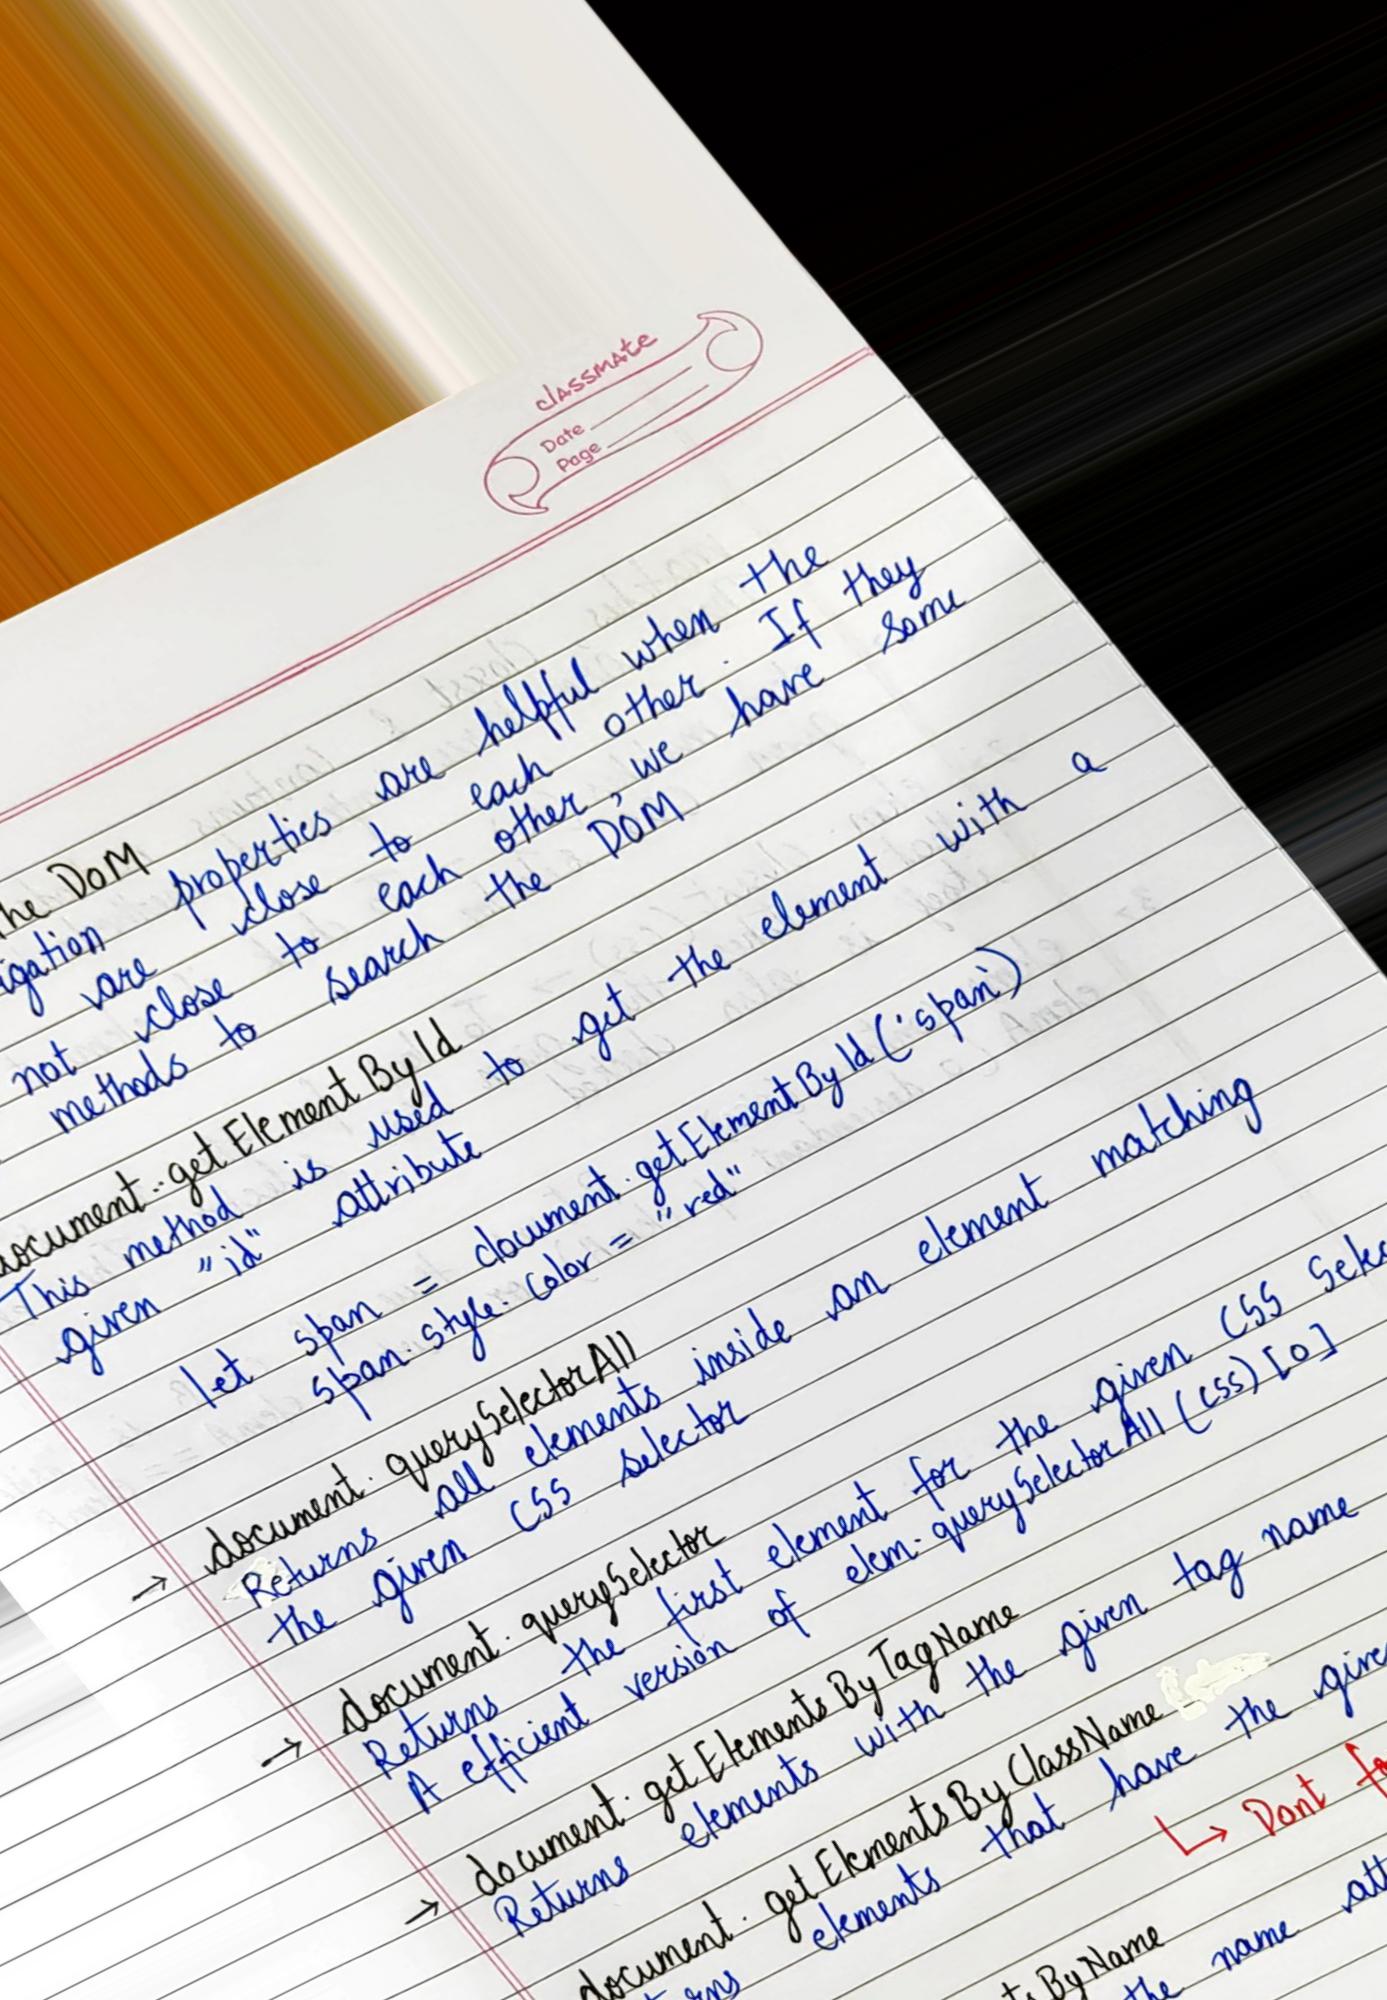 classmate
Date
Page
the DOM
igation properties are helpful when the
are close to each other. If they
not close to each other, we have some
methods to search the DOM
document.getElementById
This method is used to get the element with a
given "id" attribute
let span = document.getElementById('span')
span.style.color = "red"
→ document.querySelectorAll
Returns all elements inside an element matching
the given CSS selector
→ document.querySelector
Returns the first element for the given CSS Selec
A efficient version of elem.querySelectorAll(css)[0]
→ document.getElementsByTagName
Returns elements with the given tag name
document.getElementsByClassName
elements that have the give
↳ Dont fo
ts By Name
the name att